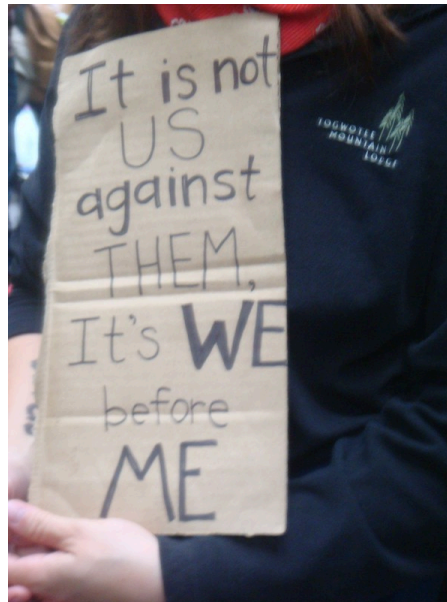 It is not
US
against
THEM,
It's WE
before
ME
TOGWOTEE
MOUNTAIN
LODGE